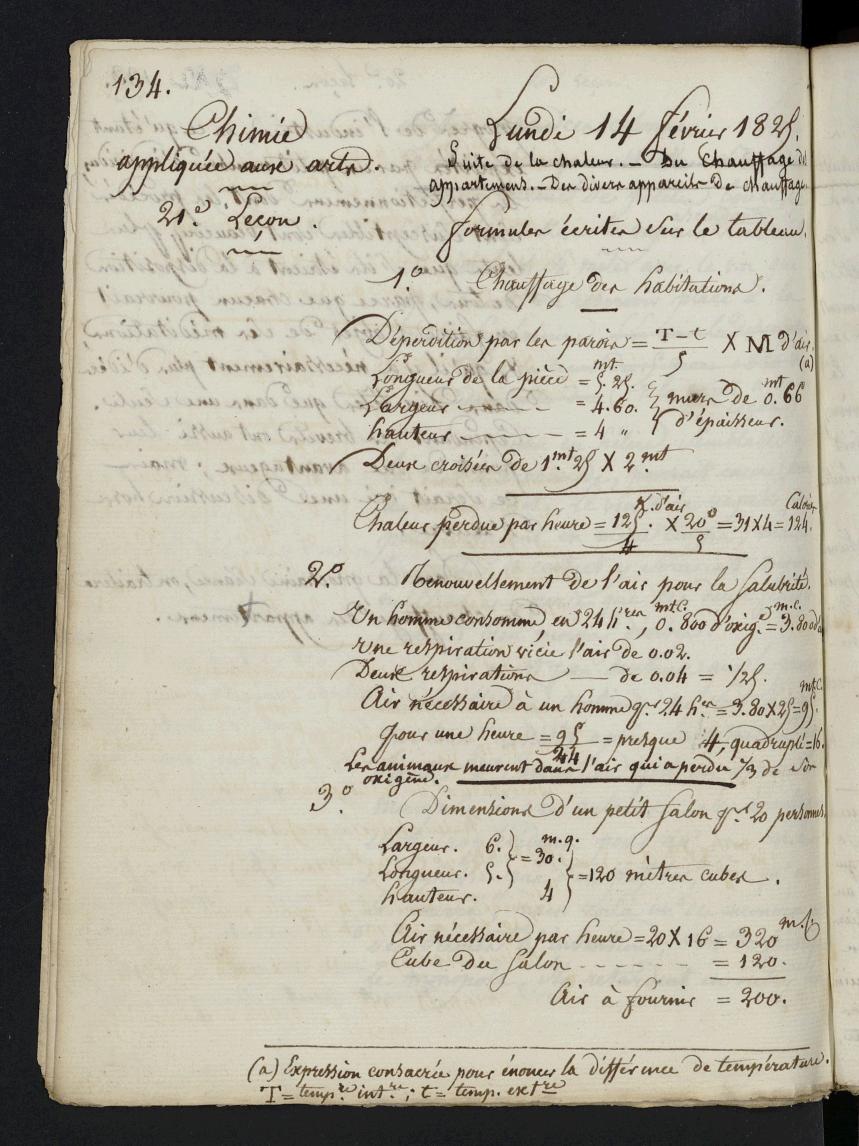 134.
Chimie
appliquée aux arts.
21.e Leçon.
Lundi 14 février 1825.
Suite de la chaleur. — Du Chauffage des
appartemens. — Des divers appareils de chauffage.
formules écrites sur le tableau.
1.o Chauffage des habitations.
Déperdition par les parois = T-t/5 X M d'air. (a)
Longueur de la pièce = 5.25. mt.
Largeur —— = 4.60. } murs de 0.mt 66
hauteur —— = 4 " d'épaisseur.
Deux croisées de 1.mt 25 X 2.mt
Chaleur perdue par heure = 125. K. d'air/4 X 20°/5 = 31 X 4 = 124. Calories
2.o Renouvellement de l'air pour la salubrité.
Un homme consomme en 24 h.res, 0.mt.c. 800 d'oxig.e = 3.m.c. 800 d'
Une respiration vicie l'air de 0.02.
Deux respirations — de 0.04 = 1/25.
Air nécessaire à un homme pr 24 h.es = 3.80 X 25 = 95. mt.c.
pour une heure = 95/24 = presque 4, quadruplé = 16.
Les animaux meurent dans l'air qui a perdu 1/3 de son
oxigène.
3.o Dimensions d'un petit salon pr. 20 personnes.
Largeur. 6. } = 30. m.q.
Longueur. 5. } = 120 mètres cubes.
hauteur. 4
Air nécessaire par heure = 20 X 16 = 320 m.c.
Cube du salon - - - - - = 120.
Air à fournir = 200.
(a) Expression consacrée pour énoncer la différence de température.
T = temp.re int.re; t = temp. ext.re